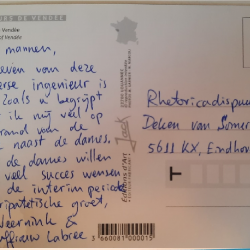 URS DE VENDÉE
Vendée
Vendée
mannen,
leven van deze
erse ingenieur is
zoals u begrijpt
ik mij veel op
rand van de
naast de dames.
de dames willen
veel succes wensen
de interim periode
ripatetische groet,
Veernink &
ffrouw Labree
Rhetoricadispuu
Deken van Somer
5611 KX, Eindhove
Éditions d'Art
Jack
3 660081 000015